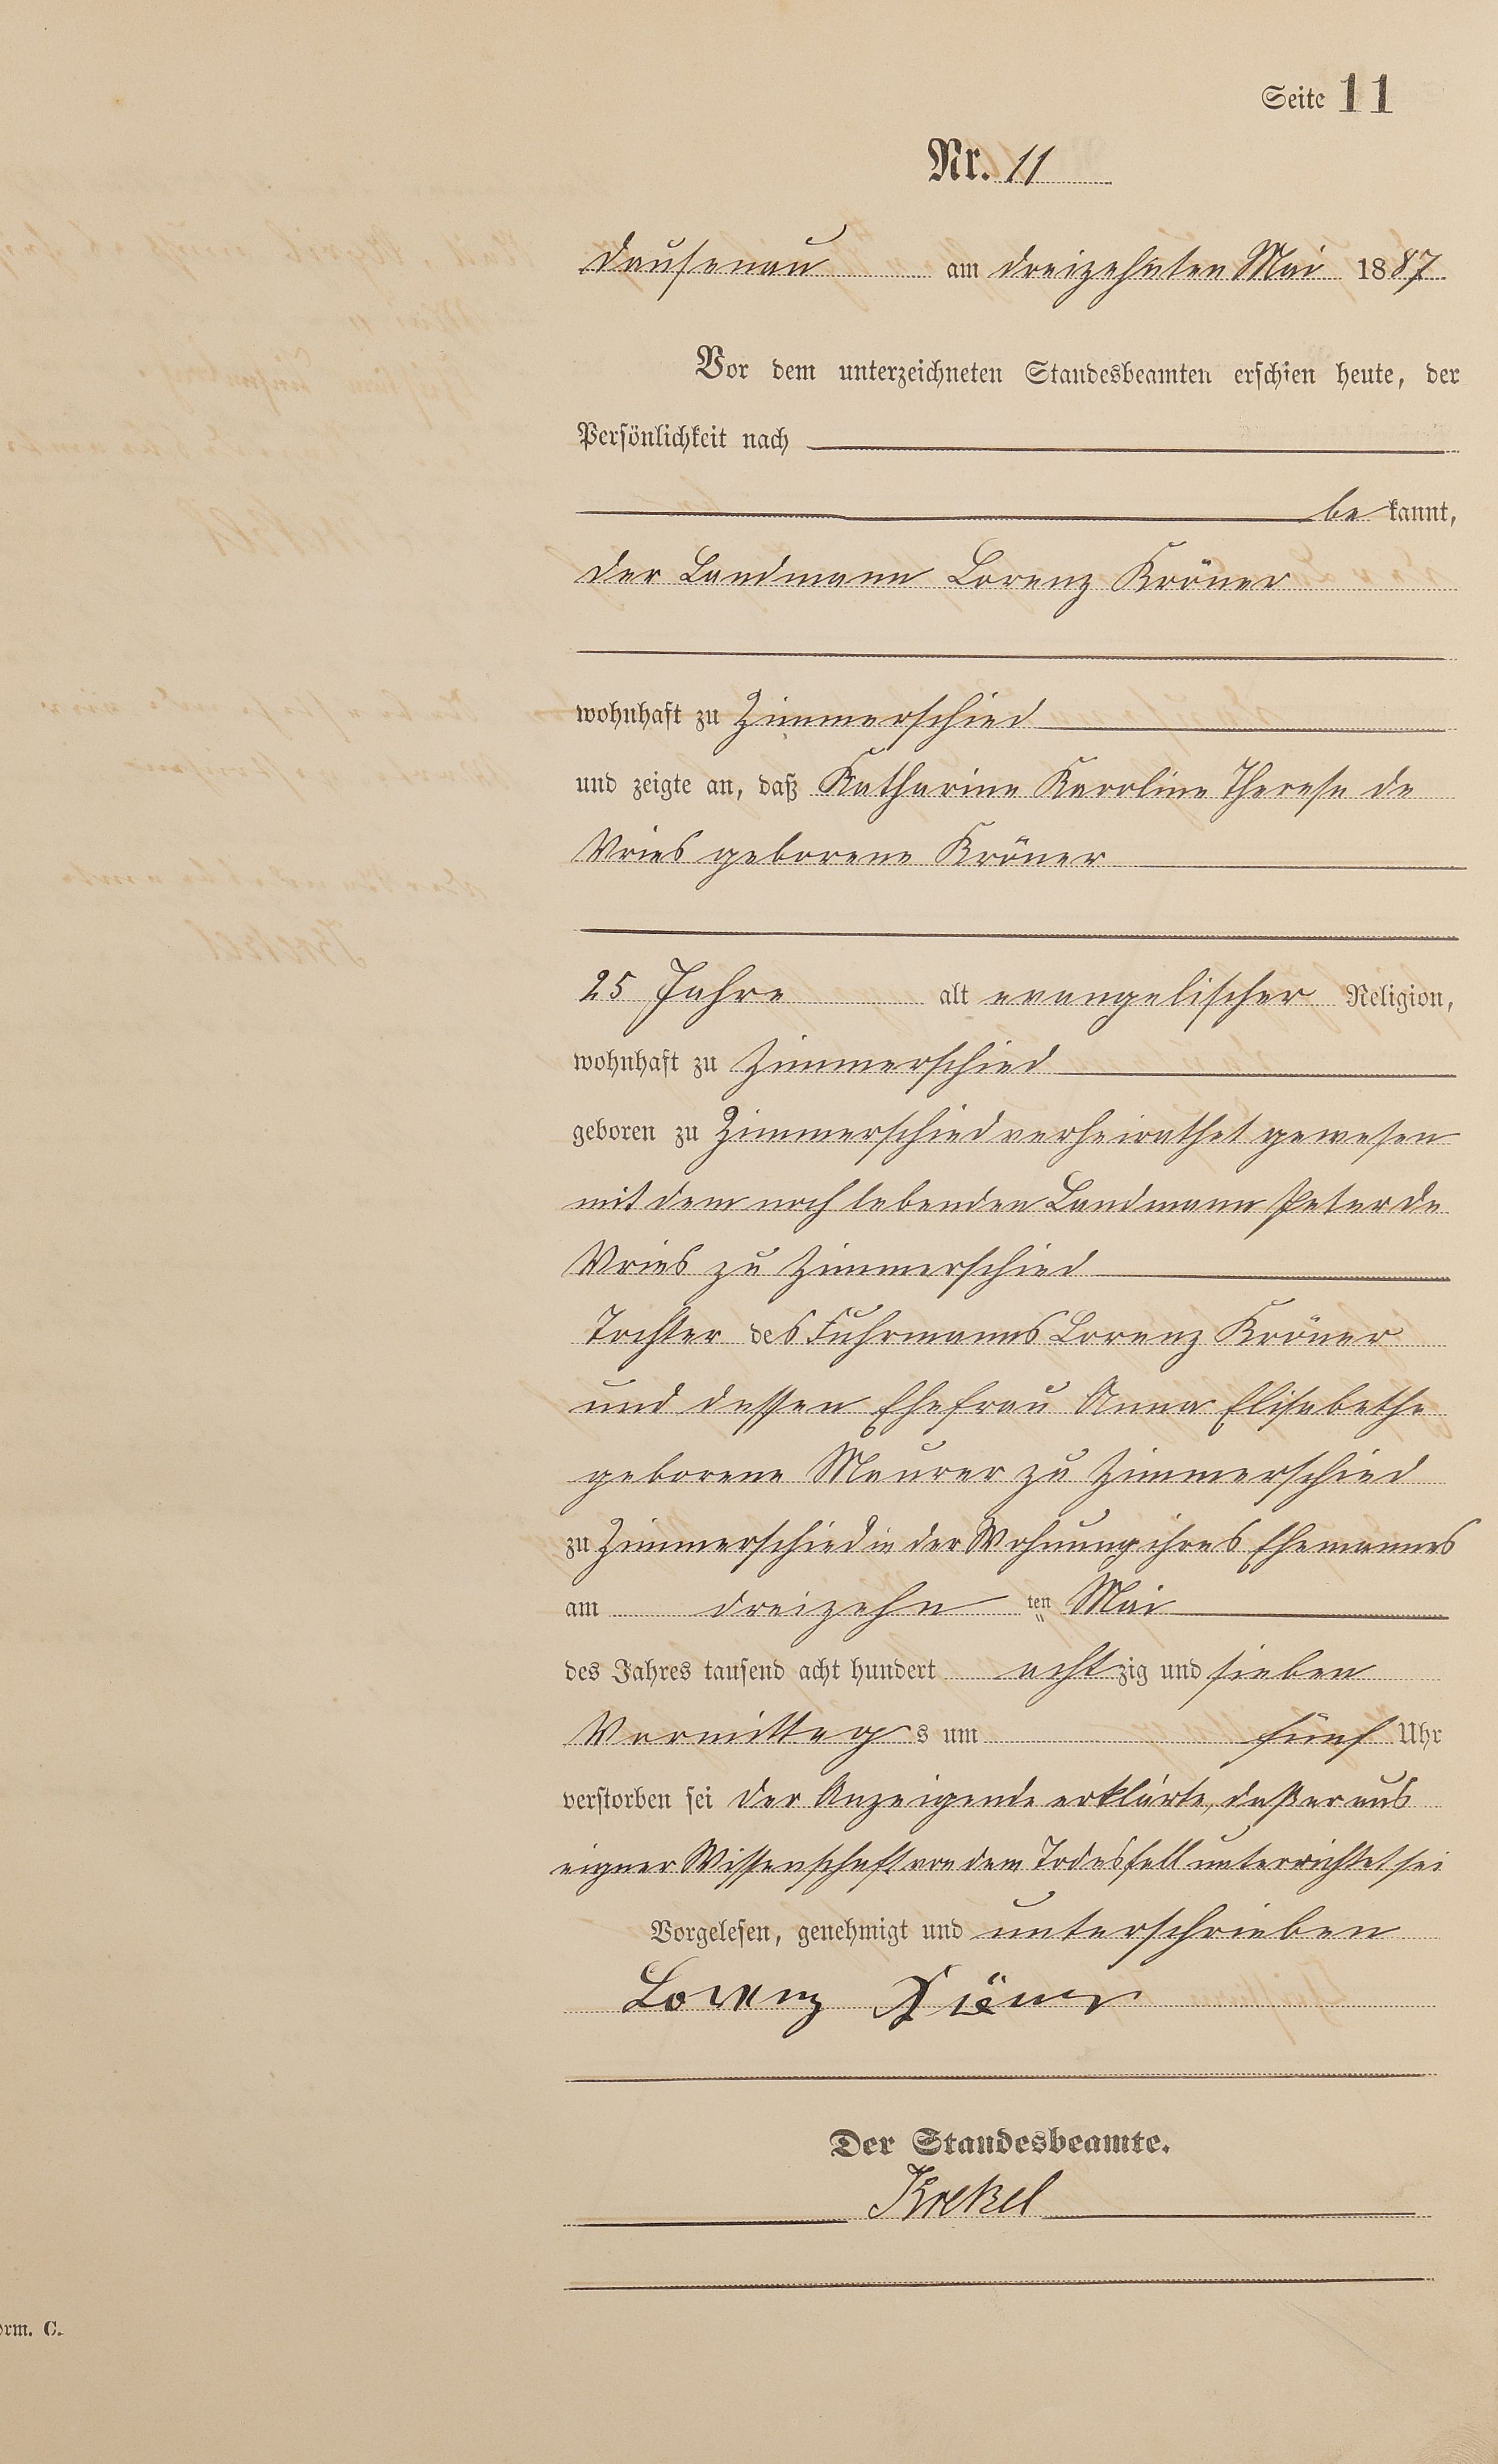 Seite 11
Nr. 11
Dausenau am dreizehnten Mai 1887
Vor dem unterzeichneten Standesbeamten erschien heute, der
Persönlichkeit nach
be kannt,
der Landmann Lorenz Kröner
wohnhaft zu Zimmerschied
und zeigte an, daß Katharine Karoline Therese de
Vries geborene Kröner
25 Jahre alt evangelischer Religion,
wohnhaft zu Zimmerschied
geboren zu Zimmerschied verheirathet gewesen
mit dem noch lebenden Landmann Peter de
Vries zu Zimmerschied
Tochter des Fuhrmanns Lorenz Kröner
und dessen Ehefrau Anna Elisabethe
geborene Maurer zu Zimmerschied
zu Zimmerschied in der Wohnung ihres Ehemannes
am dreizehn ten Mai
des Jahres tausend acht hundert achtzig und sieben
Vormittags um fünf Uhr
verstorben sei der Anzeigende erklärte, daß er aus
eigner Wissenschaft von dem Todesfall unterrichtet sei
Vorgelesen, genehmigt und unterschrieben
Lorenz Kröner
Der Standesbeamte.
Krekel
orm. C.